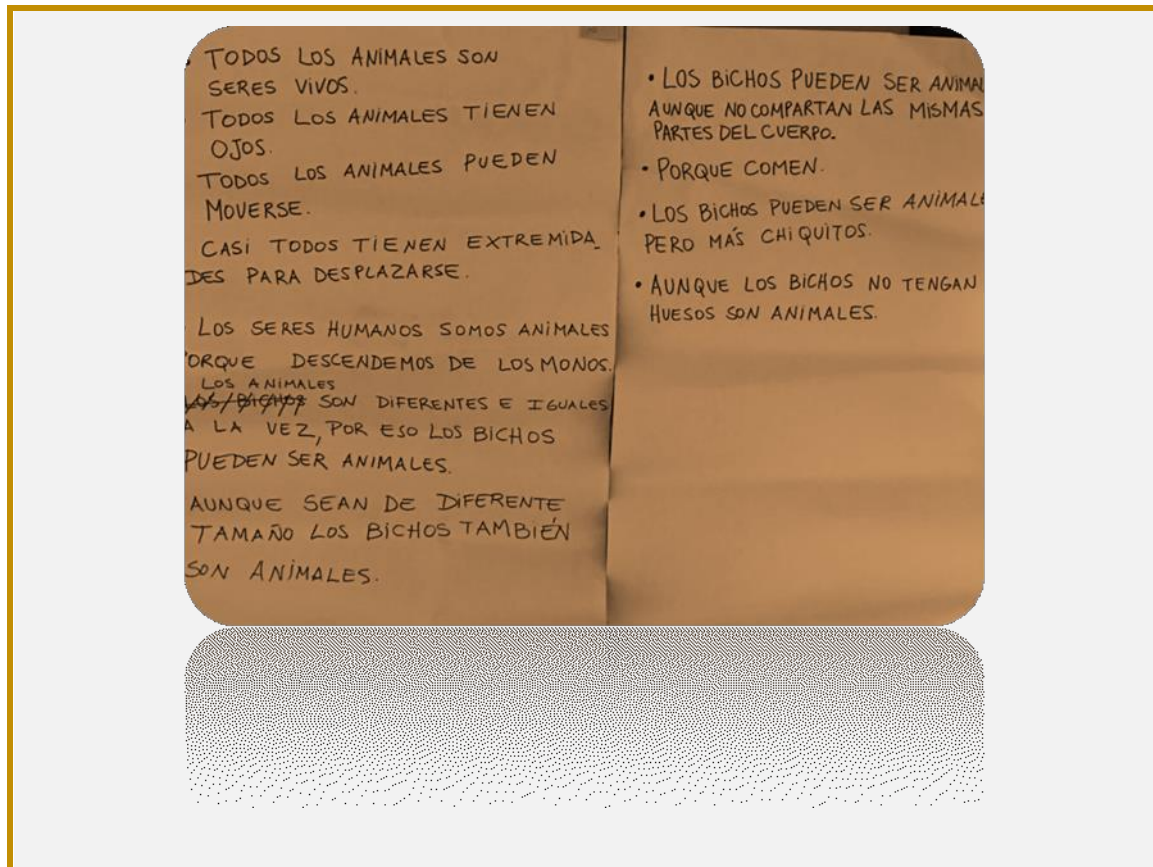 • TODOS LOS ANIMALES SON
SERES VIVOS.
TODOS LOS ANIMALES TIENEN
OJOS.
TODOS LOS ANIMALES PUEDEN
MOVERSE.
CASI TODOS TIENEN EXTREMIDA_
DES PARA DESPLAZARSE.
LOS SERES HUMANOS SOMOS ANIMALES
ORQUE DESCENDEMOS DE LOS MONOS.
LOS ANIMALES
LOS BICHOS SON DIFERENTES E IGUALES
A LA VEZ, POR ESO LOS BICHOS
PUEDEN SER ANIMALES.
AUNQUE SEAN DE DIFERENTE
TAMAÑO LOS BICHOS TAMBIÉN
SON ANIMALES.
• LOS BICHOS PUEDEN SER ANIMAL
AUNQUE NO COMPARTAN LAS MISMAS
PARTES DEL CUERPO.
• PORQUE COMEN.
• LOS BICHOS PUEDEN SER ANIMALE
PERO MÁS CHIQUITOS.
• AUNQUE LOS BICHOS NO TENGAN
HUESOS SON ANIMALES.